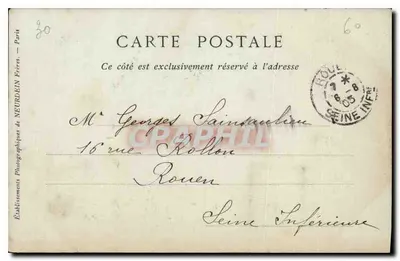 30
60
CARTE POSTALE
Ce côté est exclusivement réservé à l'adresse
ROUEN
8 - 8
05
SEINE INFRE
Mr Georges Sainsaulieu
16 rue Rollon
Rouen
Seine Inférieure
Établissements Photographiques de NEURDEIN Frères. — Paris